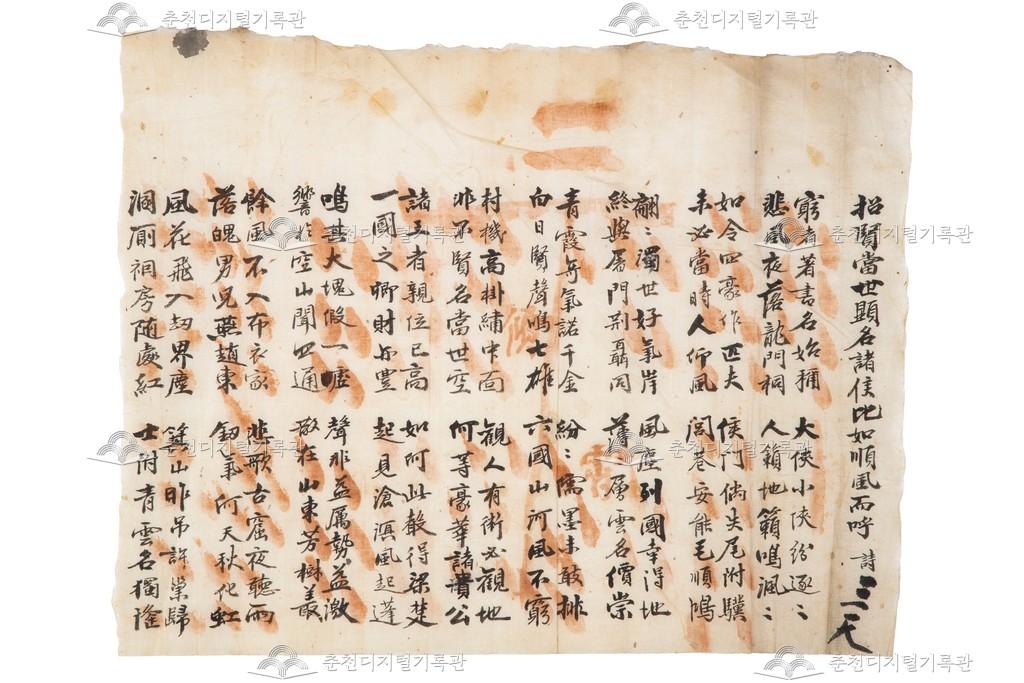 招賢當世顯名諸侯比如順風而呼 詩
窮者著書名始稱 大俠小俠紛逐〻
悲風夜落龍門桐 人籟地籟鳴渢〻
如令四豪作匹夫 侯門倘失尾附驥
未必當時人仰風 閭巷安能毛順鴻
翩〻濁世好氣岸 風塵列國幸得地
終與厲門荆聶同 薄層雲名價崇
青霞奇氣諾千金 紛〻儒墨未敢排
白日賢聲鳴七雄 六國山河風不窮
村機高掛繡中面 觀人有術必觀地
非不賢名當世空 何等豪華諸貴公
諸天者親位已高 如何此聲得梁楚
一國之卿財亦豐 起見滄溟風起蓬
鳴其大塊假一噓 聲非益厲勢益激
響於空山聞四通 在山東芳樹叢
餘風不入布衣家 悲歌古窟夜聽雨
落魄男兒燕趙東 釼氣何天秋化虹
風花飛入劫界塵 箕山昨弔許棠歸
洞厠祠房隨處紅 士附青雲名獨隆
춘천디지털기록관
춘천디지털기록관
춘천디지털기록관
춘천디지털기록관
춘천디지털기록관
춘천디지털기록관
춘천디지털기록관
춘천디지털기록관
춘천디지털기록관
춘천디지털기록관